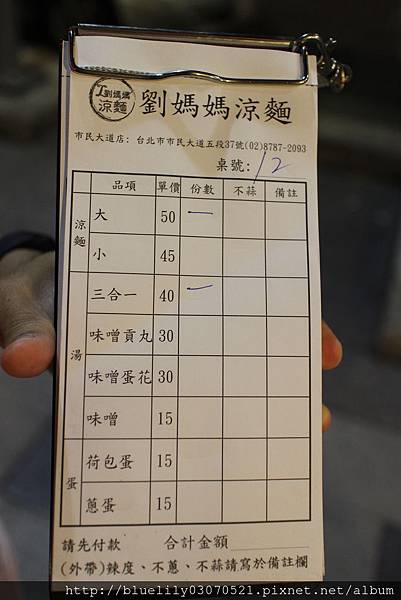 劉媽媽
涼麵
劉媽媽涼麵
市民大道店: 台北市市民大道五段37號(02)8787-2093
桌號: 12
品項 單價 份數 不蒜 備註
涼麵
大 50 一
小 45
湯
三合一 40 一
味噌貢丸 30
味噌蛋花 30
味噌 15
蛋
荷包蛋 15
蔥蛋 15
請先付款 合計金額
(外帶)辣度、不蔥、不蒜請寫於備註欄
http://bluelily03070521.pixnet.net/album